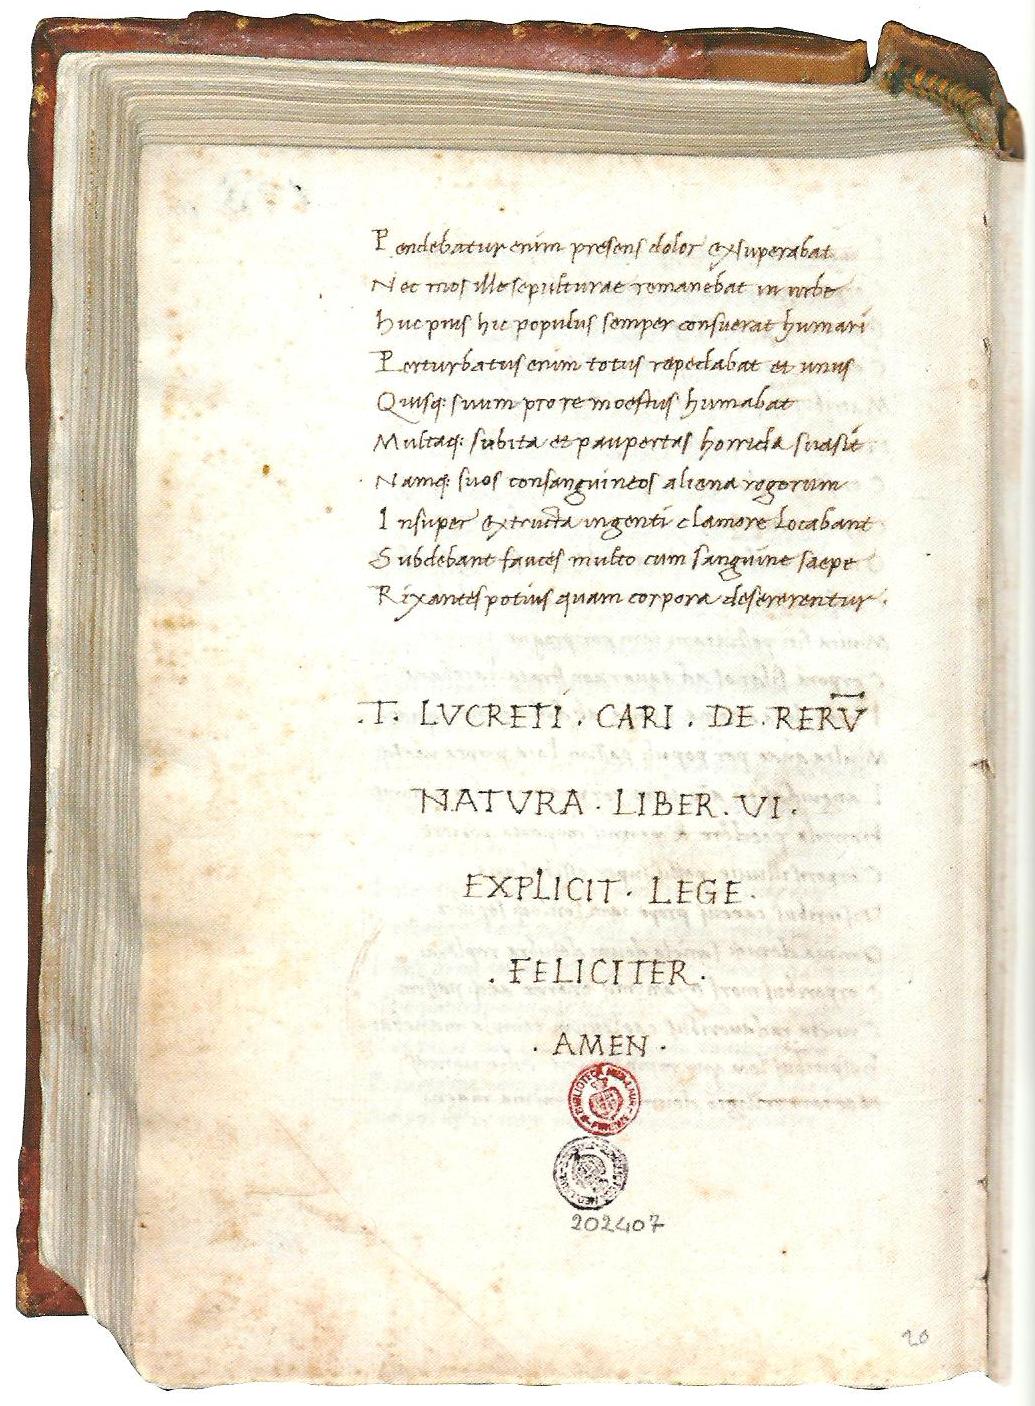 Pendebatur enim presens dolor exsuperabat
Nec mos ille sepulturae remanebat in urbe
Huc prius hic populus semper consuerat humari
Perturbatus enim totus repedabat et unus
Quisq: suum pro re moestus humabat
Multaq: subita et paupertas horrida suasit
Namq: suos consanguineos aliena rogorum
Insuper extructa ingenti clamore locabant
Subdebant fauces multo cum sanguine saepe
Rixantes potius quam corpora desererentur.
.T. LVCRETI . CARI . DE . RERV̄
NATVRA . LIBER . VI .
EXPLICIT . LEGE .
. FELICITER .
. AMEN .
202407
20